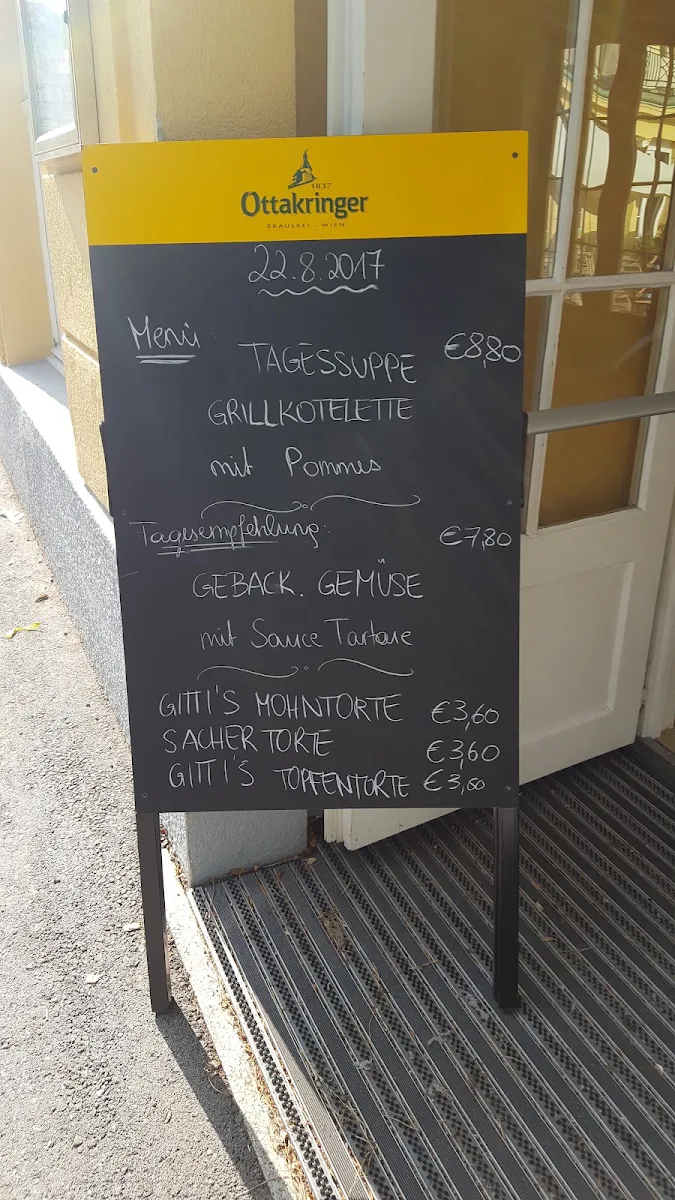 1837
Ottakringer
BRAUEREI - WIEN
22.8.2017
Menü €8,80
TAGESSUPPE
GRILLKOTELETTE
mit Pommes
Tagesempfehlung: €7,80
GEBACK. GEMÜSE
mit Sauce Tartare
GITTI'S MOHNTORTE €3,60
SACHER TORTE €3,60
GITTI'S TOPFENTORTE €3,60